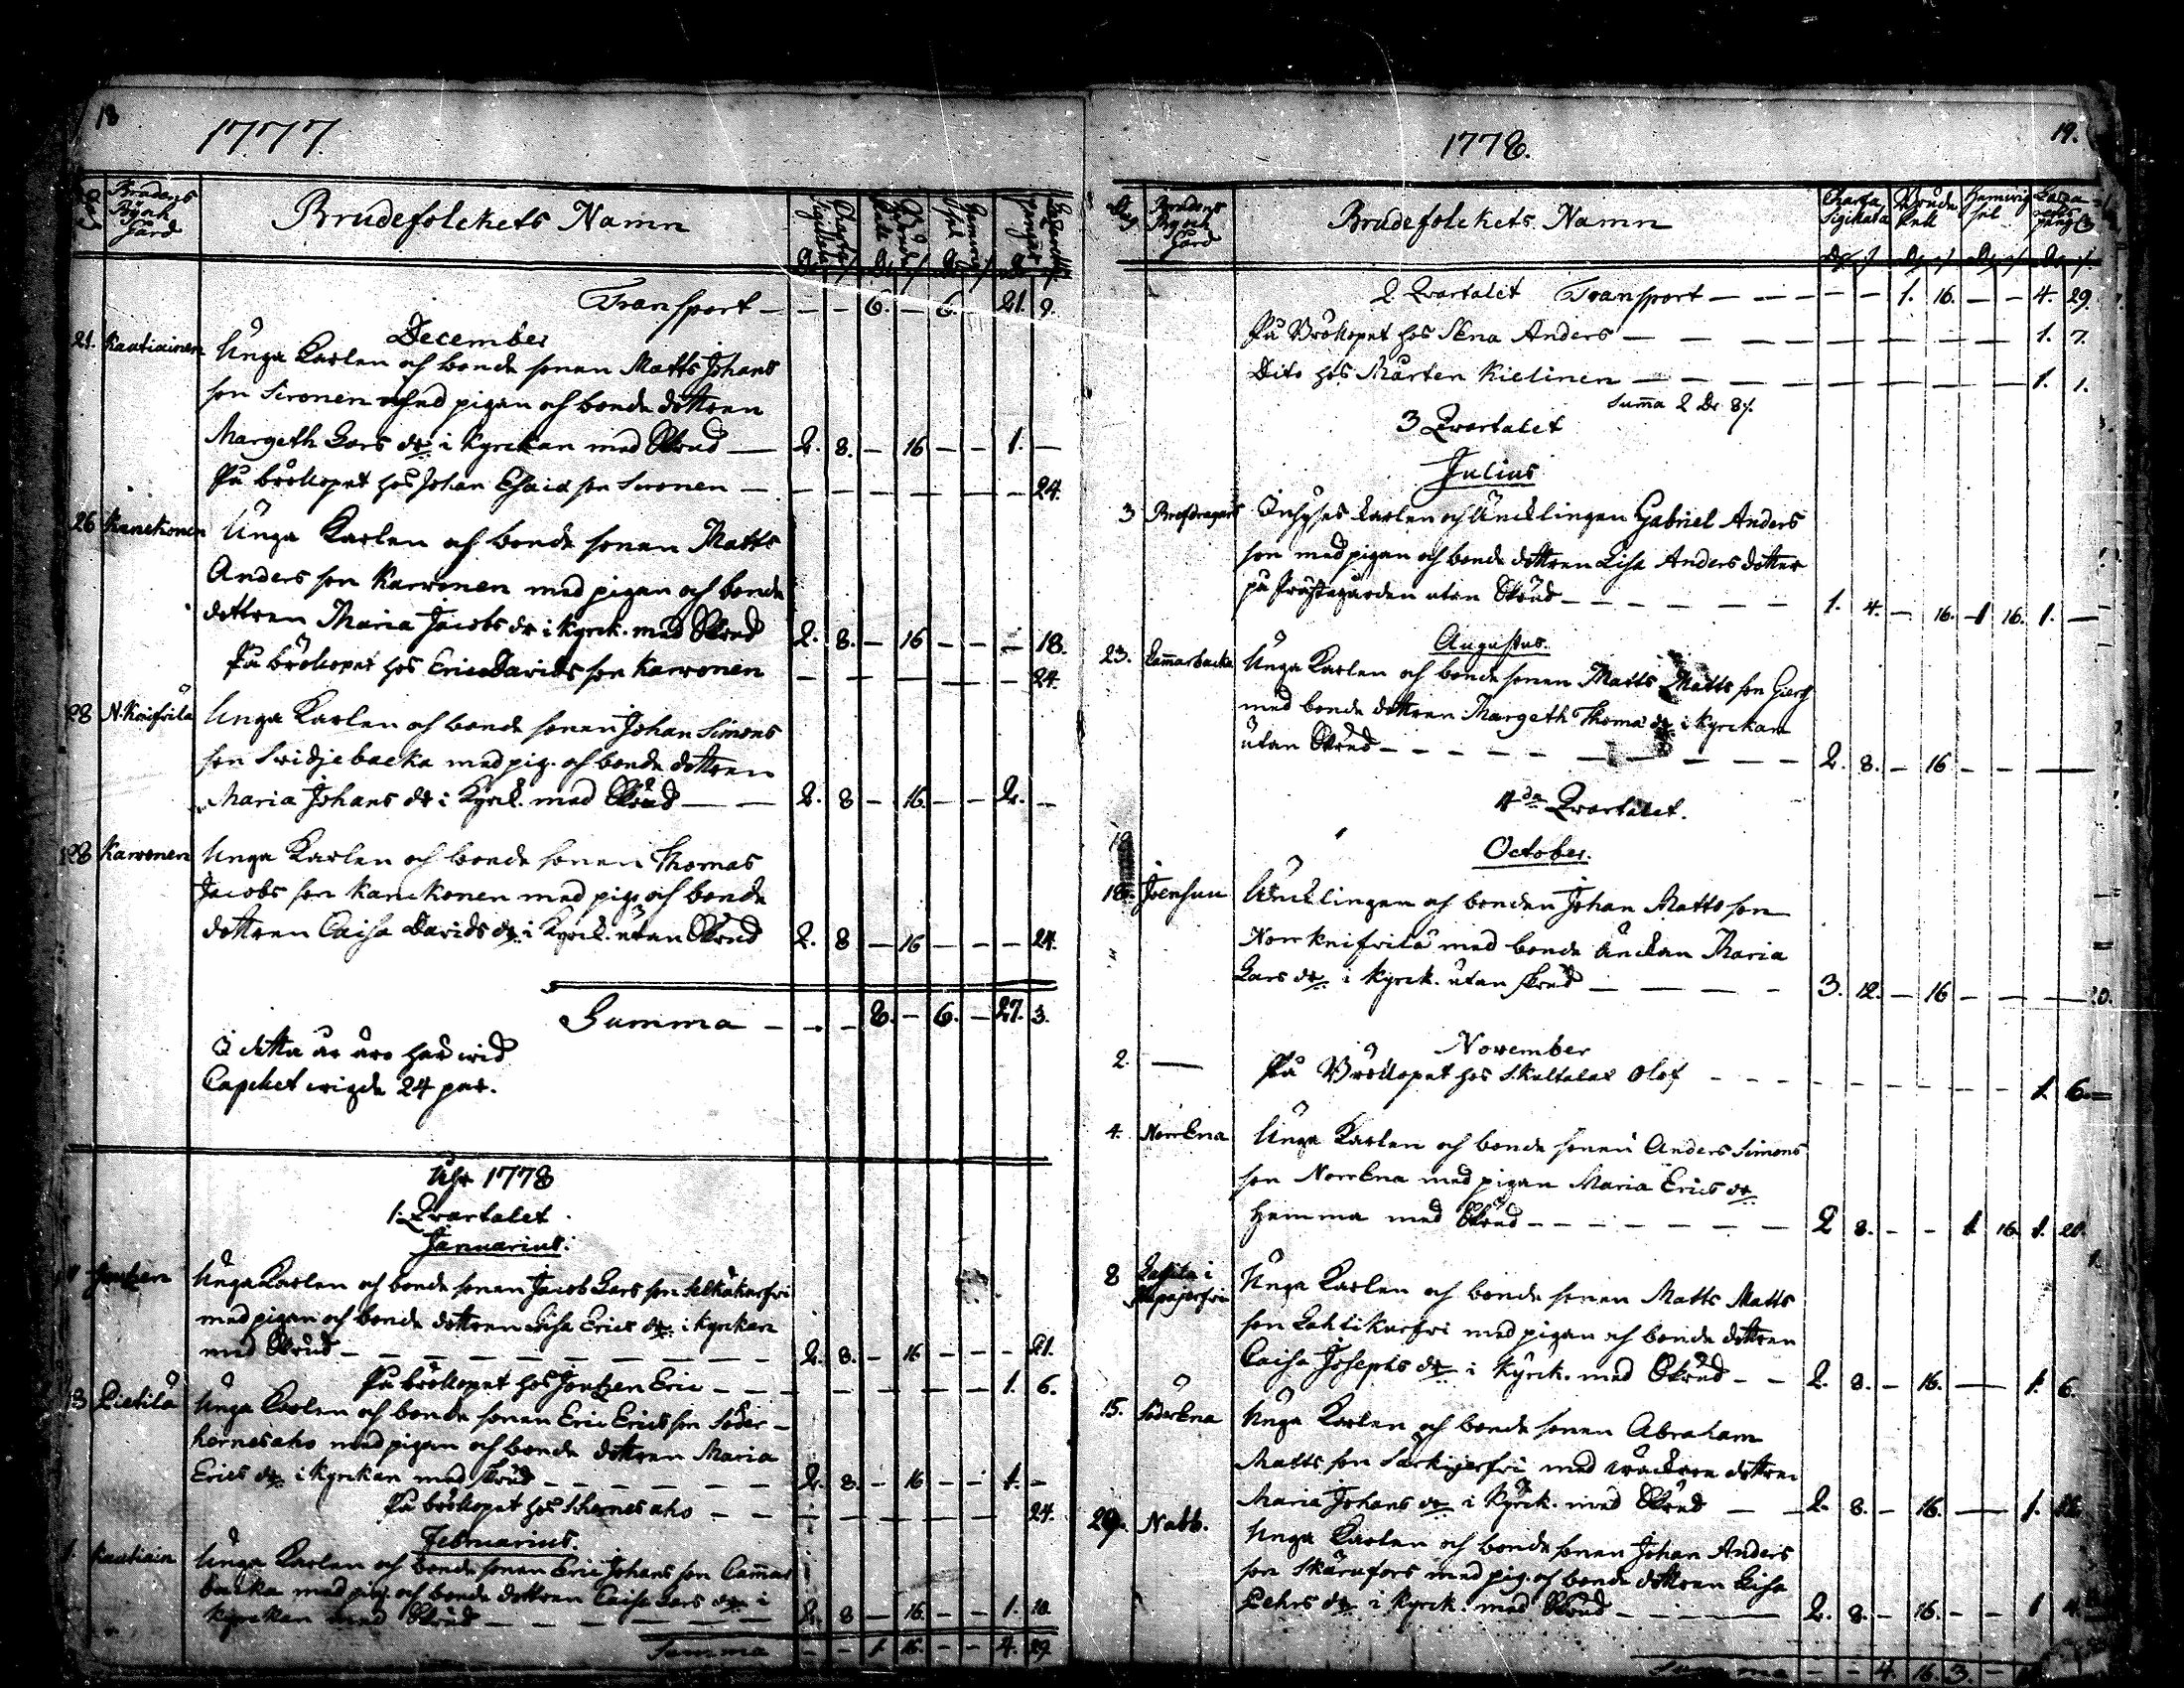 18
1777
Brudens By och Gård
Brudefolckets Namn
Charta Sigillata
Brude Pell
Hemvigsel
Lazaretts pengar
Transport — — — 6. — 6. 21. 9.
December
21. Kaatiainen Unga Karlen och bonde sonen Matts Johans
son Sironen med pigan och bonde dottren
Margeth Lars dr i Kyrckan med Skrud — 2. 8. — 16 — — 1. —
På bröllopet hos Johan Esaiæ son Sironen — — — — — — — 24.
26 Kanckonen Unga Karlen och bonde sonen Matts
Anders son Karvonen med pigan och bonde
dottren Maria Jacobs dr i Kyrck. med Skrud 2. 8. — 16 — — — 18.
På bröllopet hos Eric Davids son Karvonen — — — — — 24.
28 N. Knifvilä Unga Karlen och bonde sonen Johan Simons
son Svidjebacka med pig. och bonde dottren
Maria Johans dr i Kyrck. med Skrud — — 2. 8 — 16. — — 2. —
28 Karvonen Unga Karlen och bonde sonen Thomas
Jacobs son Kanckonen med pig. och bonde
dottren Caisa Davids dr i Kyrck. utan Skrud 2. 8 — 16 — — — 24.
Summa — — — 8. — 6. — 27. 3.
I detta år äro här vid
Capellet vigde 24 par.
Åhr 1778
1. Qvartalet
Januarius.
Jontzen Unga Karlen och bonde sonen Jacob Lars son
med pigan och bonde dottren Lisa Erics dr i Kyrckan
med Skrud — — — — — 2. 8. — 16 — — — 21.
På bröllopet hos Jontzen Eric — — — — — 1. 6.
13 Pietilä Unga Karlen och bonde sonen Eric Erics son Söder-
hernesaho med pigan och bonde dottren Maria
Erics dr i Kyrckan med Skrud — — — 2. 8. — 16 — — 1. —
På bröllopet hos S.hernesaho — — — — — 24.
Februarius.
1. Kaatiain Unga Karlen och bonde sonen Eric Johans son Cam̄ar
backa med pig. och bonde dottren Caisa Lars dr i
Kyrckan med Skrud — — — — 2. 8 — 16. — — 1. 10.
Summa — — 1. 16. — — 4. 29.
19.
1778.
Dag
Brudens By och Gård
Brudefolckets Namn
Charta Sigillata
Brude Pell
Hemvigsel
Lazaretts peng
2 Qvartalet Transport — — — — — 1. 16. — — 4. 29.
På Bröllopet hos SEna Anders — — — — — 1. 7.
Dito hos Mårten Kielinen — — — — — 1. 1.
Sum̄a 2 Dr 8/.
3 Qvartalet
Julius
3 Brefdragars Inhyses karlen och Äncklingen Gabriel Anders
son med pigan och bonde dottren Lisa Anders dotter
på Prästegården utan Skrud — — — — — 1. 4. — 16. 1 16. 1. —
Augustus.
23. Cam̄arbacka Unga Karlen och bonde sonen Matts Matts son
med bonde dottren Margeth Thomæ dr i Kyrckan
utan Skrud — — — — — 2. 8. — 16 — — —
4de Qvartalet.
October.
18. Joensuu Äncklingen och bonden Johan Matts son
Norrknifvilä med bonde änckan Maria
Lars dr i Kyrck. utan Skrud — — — — 3. 12. — 16 — — — 20.
November
2. — På Bröllopet hos Skaltalax Olof — — — — — 1. 6.
4. NorrEna Unga Karlen och bonde sonen Anders Simons
son NorrEna med pigan Maria Erics dr
hemma med Skrud — — — — — 2 8. — — 1. 16. 1. 20.
8 Unga Karlen och bonde sonen Matts Matts
son Lahtikurfvi med pigan och bonde dottren
Caisa Josephs dr i Kyrck. med Skrud — — 2. 8. — 16. — 1. 6.
15. SöderEna Unga Karlen och bonde sonen Abraham
Matts son Särkijerfvi med dottren
Maria Johans dr i Kyrck. med Skrud — — 2. 8. — 16. — 1.
29. Nabb. Unga Karlen och bonde sonen Johan Anders
son Skärufors med pig. och bonde dottren Lisa
Pehrs dr i Kyrck. med Skrud — — — 2. 8. — 16. — — 1 4.
Summa — — 4. 16. 3. —